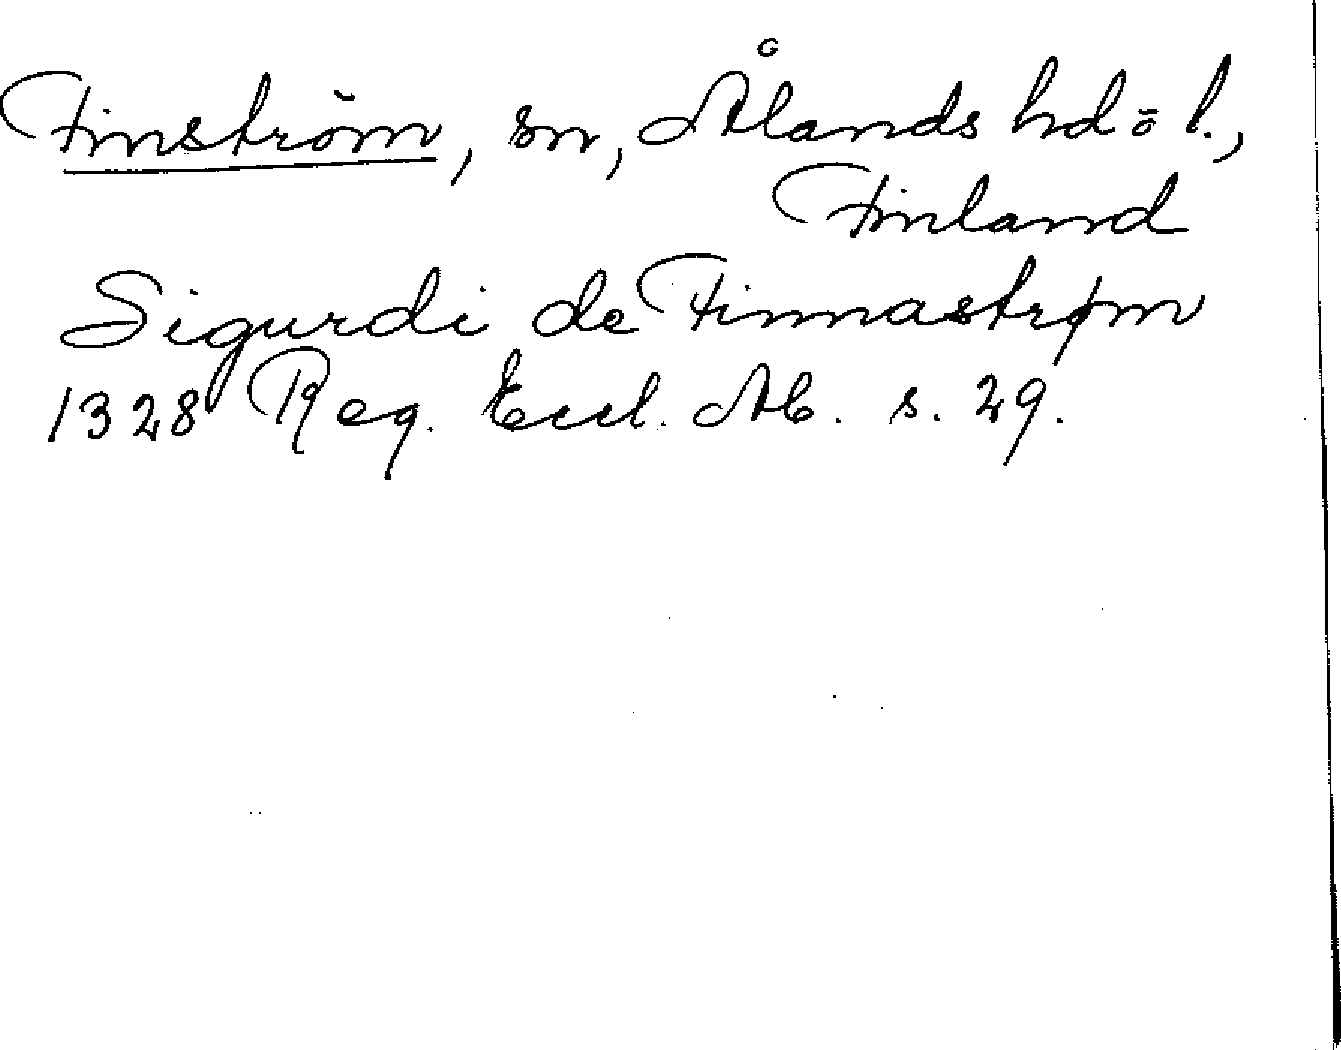 Finström, sn, Ålands hd o l.,
Finland
Sigurdi de Finnastrøm
1328 Reg. Eccl. Ab. s. 29.